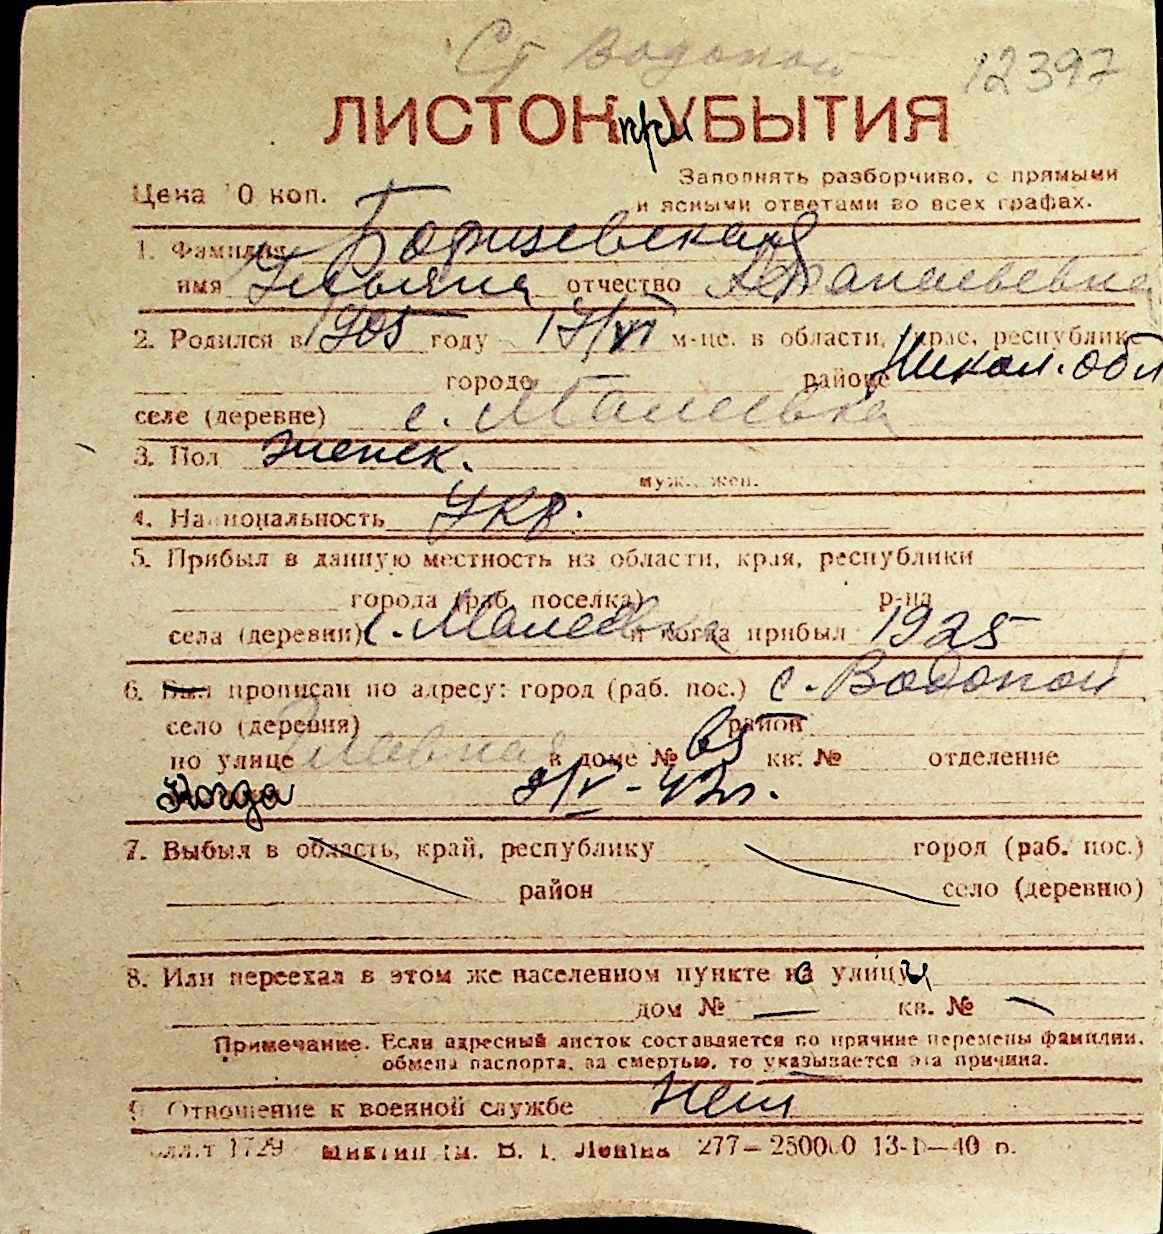 Ст Водопой 12397
ЛИСТОК при УБЫТИЯ
Цена 10 коп.
Заполнять разборчиво, с прямыми
и ясными ответами во всех графах.
1. Фамилия
имя Ульяна отчество
2. Родился в 1905 году 17/VI м-це. в области, крае, республик
городе районе Никол. обл
селе (деревне) с. Малеевка
3. Пол женск.
муж., жен.
4. Национальность Укр.
5. Прибыл в данную местность из области, края, республики
города (раб. поселка) р-на
села (деревни) с. Малеевка и когда прибыл 1925
6. Был прописан по адресу: город (раб. пос.) с. Водопой
село (деревня) район
по улице Главная в доме № 65 кв. № отделение
Когда
7. Выбыл в область, край, республику город (раб. пос.)
район село (деревню)
8. Или переехал в этом же населенном пункте с улицы
дом № — кв. №
Примечание. Если адресный листок составляется по причине перемены фамилии,
обмена паспорта, за смертью, то указывается эта причина.
9. Отношение к военной службе Нет
1729 В. І. Леніна 277—250000 40 р.